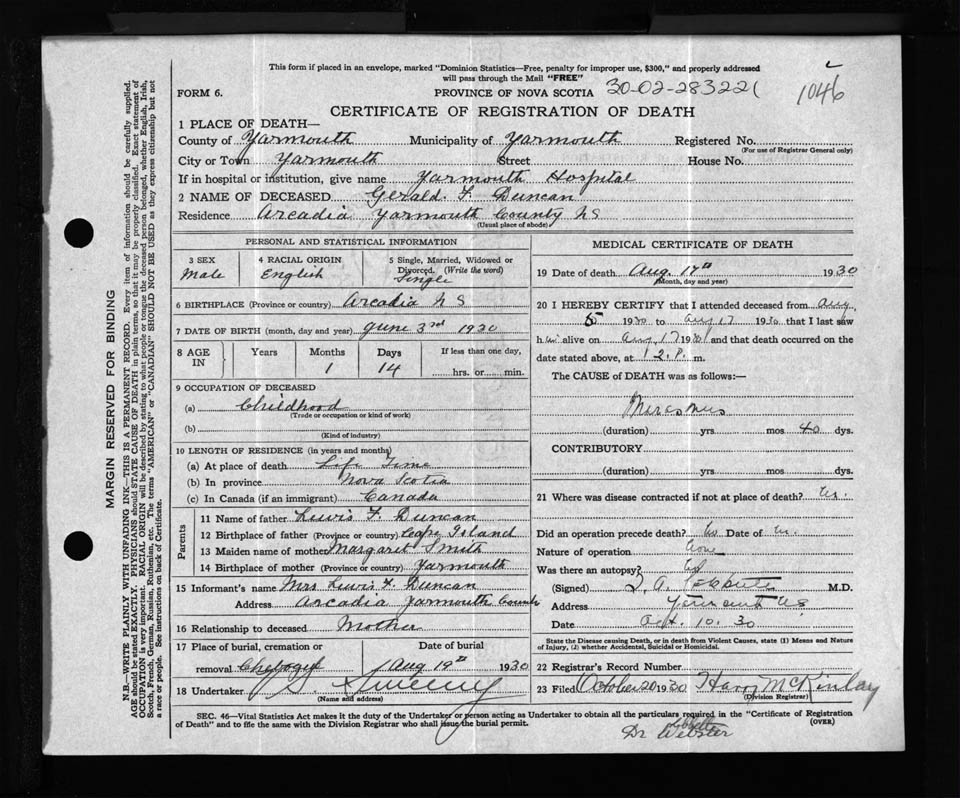 This form if placed in an envelope, marked "Dominion Statistics—Free, penalty for improper use, $300," and properly addressed
will pass through the Mail "FREE"
FORM 6. PROVINCE OF NOVA SCOTIA 30-02-283221 1046
CERTIFICATE OF REGISTRATION OF DEATH
1 PLACE OF DEATH—
County of Yarmouth Municipality of Yarmouth Registered No.
(For use of Registrar General only)
City or Town Yarmouth Street House No.
If in hospital or institution, give name Yarmouth Hospital
2 NAME OF DECEASED Gerald. F. Duncan
Residence Arcadia Yarmouth County NS
(Usual place of abode)
PERSONAL AND STATISTICAL INFORMATION
3 SEX 4 RACIAL ORIGIN 5 Single, Married, Widowed or
Divorced. (Write the word)
Male English Single
6 BIRTHPLACE (Province or country) Arcadia N S
7 DATE OF BIRTH (month, day and year) June 3rd 1930
8 AGE IN Years Months Days If less than one day,
1 14 hrs. or min.
9 OCCUPATION OF DECEASED
(a) Childhood
(Trade or occupation or kind of work)
(b)
(Kind of industry)
10 LENGTH OF RESIDENCE (in years and months)
(a) At place of death Life Time
(b) In province Nova Scotia
(c) In Canada (if an immigrant) Canada
Parents
11 Name of father Lewis F. Duncan
12 Birthplace of father (Province or country) Cape Island
13 Maiden name of mother Margaret Smith
14 Birthplace of mother (Province or country) Yarmouth
15 Informant's name Mrs Lewis F. Duncan
Address Arcadia Yarmouth County
16 Relationship to deceased Mother
17 Place of burial, cremation or Date of burial
removal Chebogue Aug 19th 1930
18 Undertaker Sweeny
(Name and address)
MEDICAL CERTIFICATE OF DEATH
19 Date of death Aug. 17th 1930
(Month, day and year)
20 I HEREBY CERTIFY that I attended deceased from Aug
5 1930 to Aug 17 1930 that I last saw
h im alive on Aug 17 1930 and that death occurred on the
date stated above, at 12. P. m.
The CAUSE OF DEATH was as follows:—
Marasmus
(duration) yrs mos 40 dys.
CONTRIBUTORY
(duration) yrs mos dys.
21 Where was disease contracted if not at place of death?
Did an operation precede death? No Date of
Nature of operation None
Was there an autopsy?
(Signed) M.D.
Address Yarmouth NS
Date Oct. 10. 30
State the Disease causing Death, or in death from Violent Causes, state (1) Means and Nature
of Injury, (2) whether Accidental, Suicidal or Homicidal.
22 Registrar's Record Number
23 Filed October 20 1930 Harry McKinlay
(Division Registrar)
SEC. 46—Vital Statistics Act makes it the duty of the Undertaker or person acting as Undertaker to obtain all the particulars required in the "Certificate of Registration
of Death" and to file the same with the Division Registrar who shall issue the burial permit. (OVER)
Dr Webster
MARGIN RESERVED FOR BINDING
N.B.—WRITE PLAINLY WITH UNFADING INK—THIS IS A PERMANENT RECORD. Every item of information should be carefully supplied.
AGE should be stated EXACTLY. PHYSICIANS should STATE CAUSE OF DEATH in plain terms, so that it may be properly classified. Exact statement of
OCCUPATION is very important. RACIAL ORIGIN will be described by stating to what people or tongue the deceased person belonged, whether English, Irish,
Scotch, French, German, Russian, Ruthenian, etc. The terms "AMERICAN" or "CANADIAN" SHOULD NOT BE USED as they express citizenship but not
a race or people. See instructions on back of Certificate.